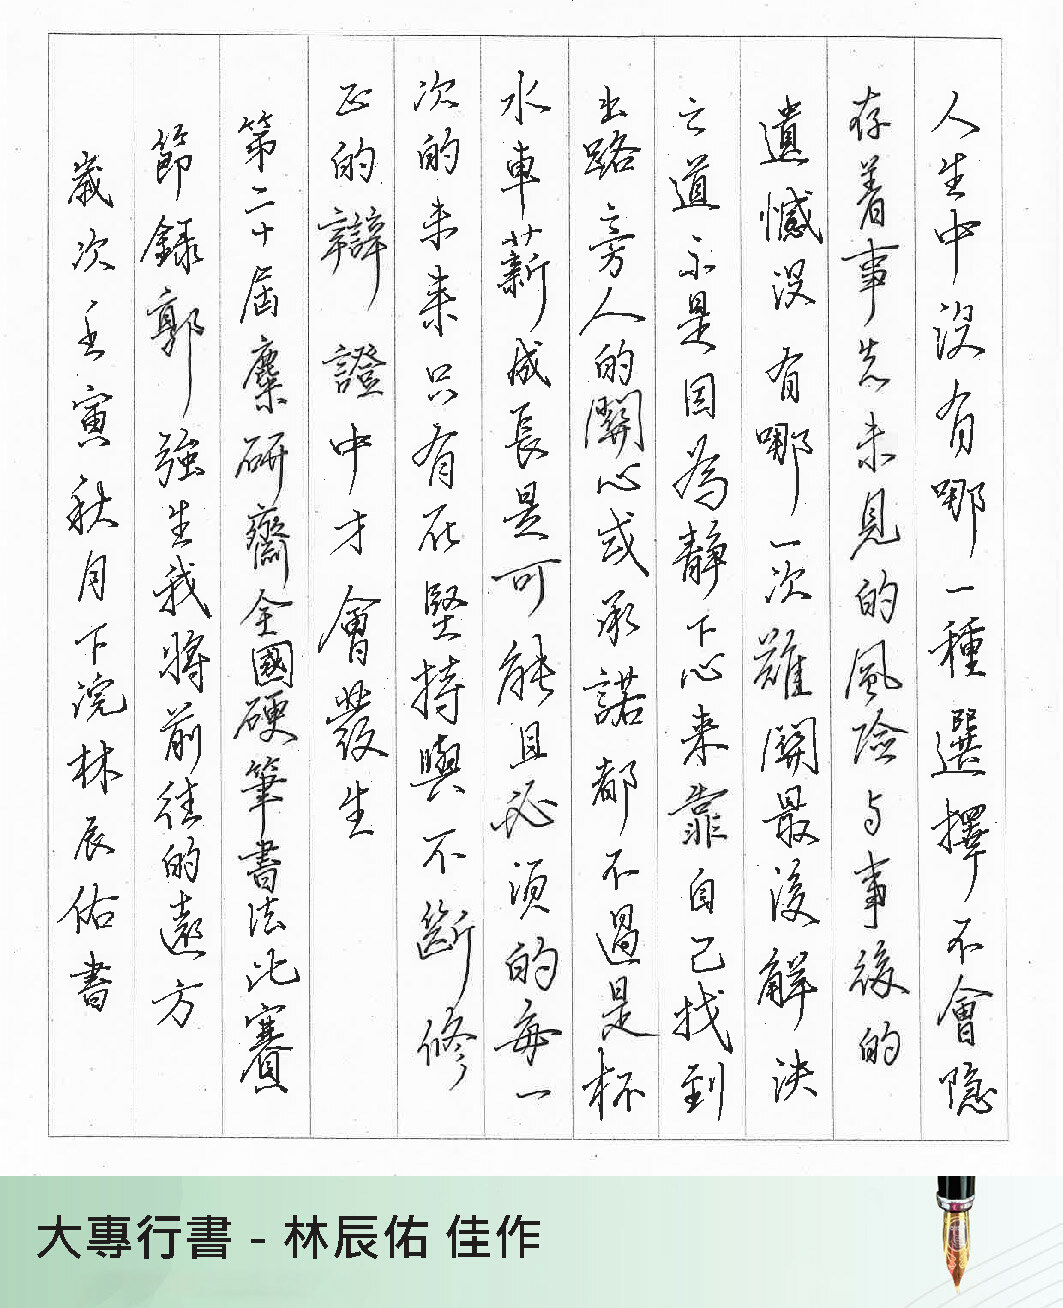 人生中没有哪一種選擇不會隐
存着事先未見的風險与事後的
遺憾没有哪一次難關最後解决
之道不是因為靜下心来靠自己找到
出路旁人的關心或承諾都不過是杯
水車薪成長是可能且必須的每一
次的未来只有在堅持與不斷修
正的辯證中才會發生
第二十屆麋研齋全國硬筆書法比賽
節錄郭強生我將前往的遠方
歲次壬寅秋月下浣林辰佑書
大專行書 - 林辰佑 佳作